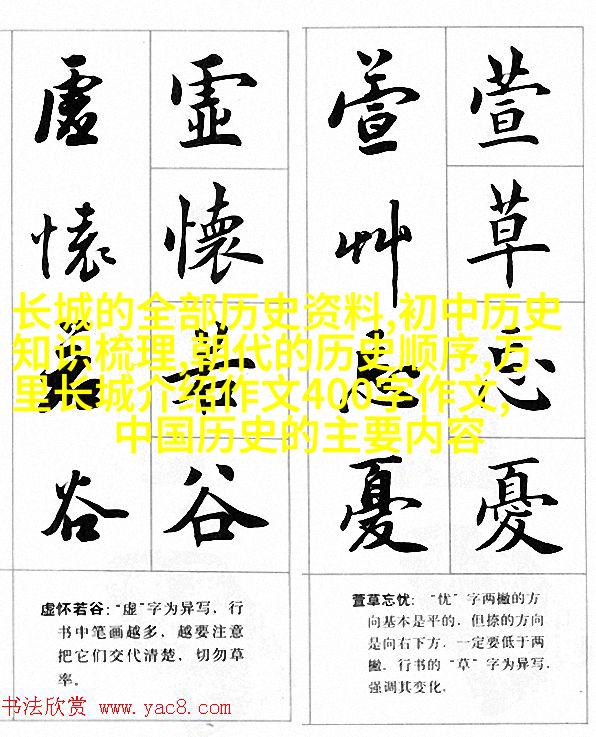 虛懷若谷
虛懷若谷
萱艸忘憂
萱草忘憂
长城的全部历史资料,初中历史
知识梳理,朝代的历史顺序,万
里长城介绍作文400字作文,
中国历史的主要内容
虚怀若谷:“虚”字为异写，行
书中笔画越多，越要注意
把它们交代清楚，切勿草
率。
萱草忘忧:“忧”字两撇的方
向基本是平的，但捺的方向
是向右下方，一定要低于两
撇。行书的“草”字为异写，
强调其变化。
书法欣赏 www.yac8.com